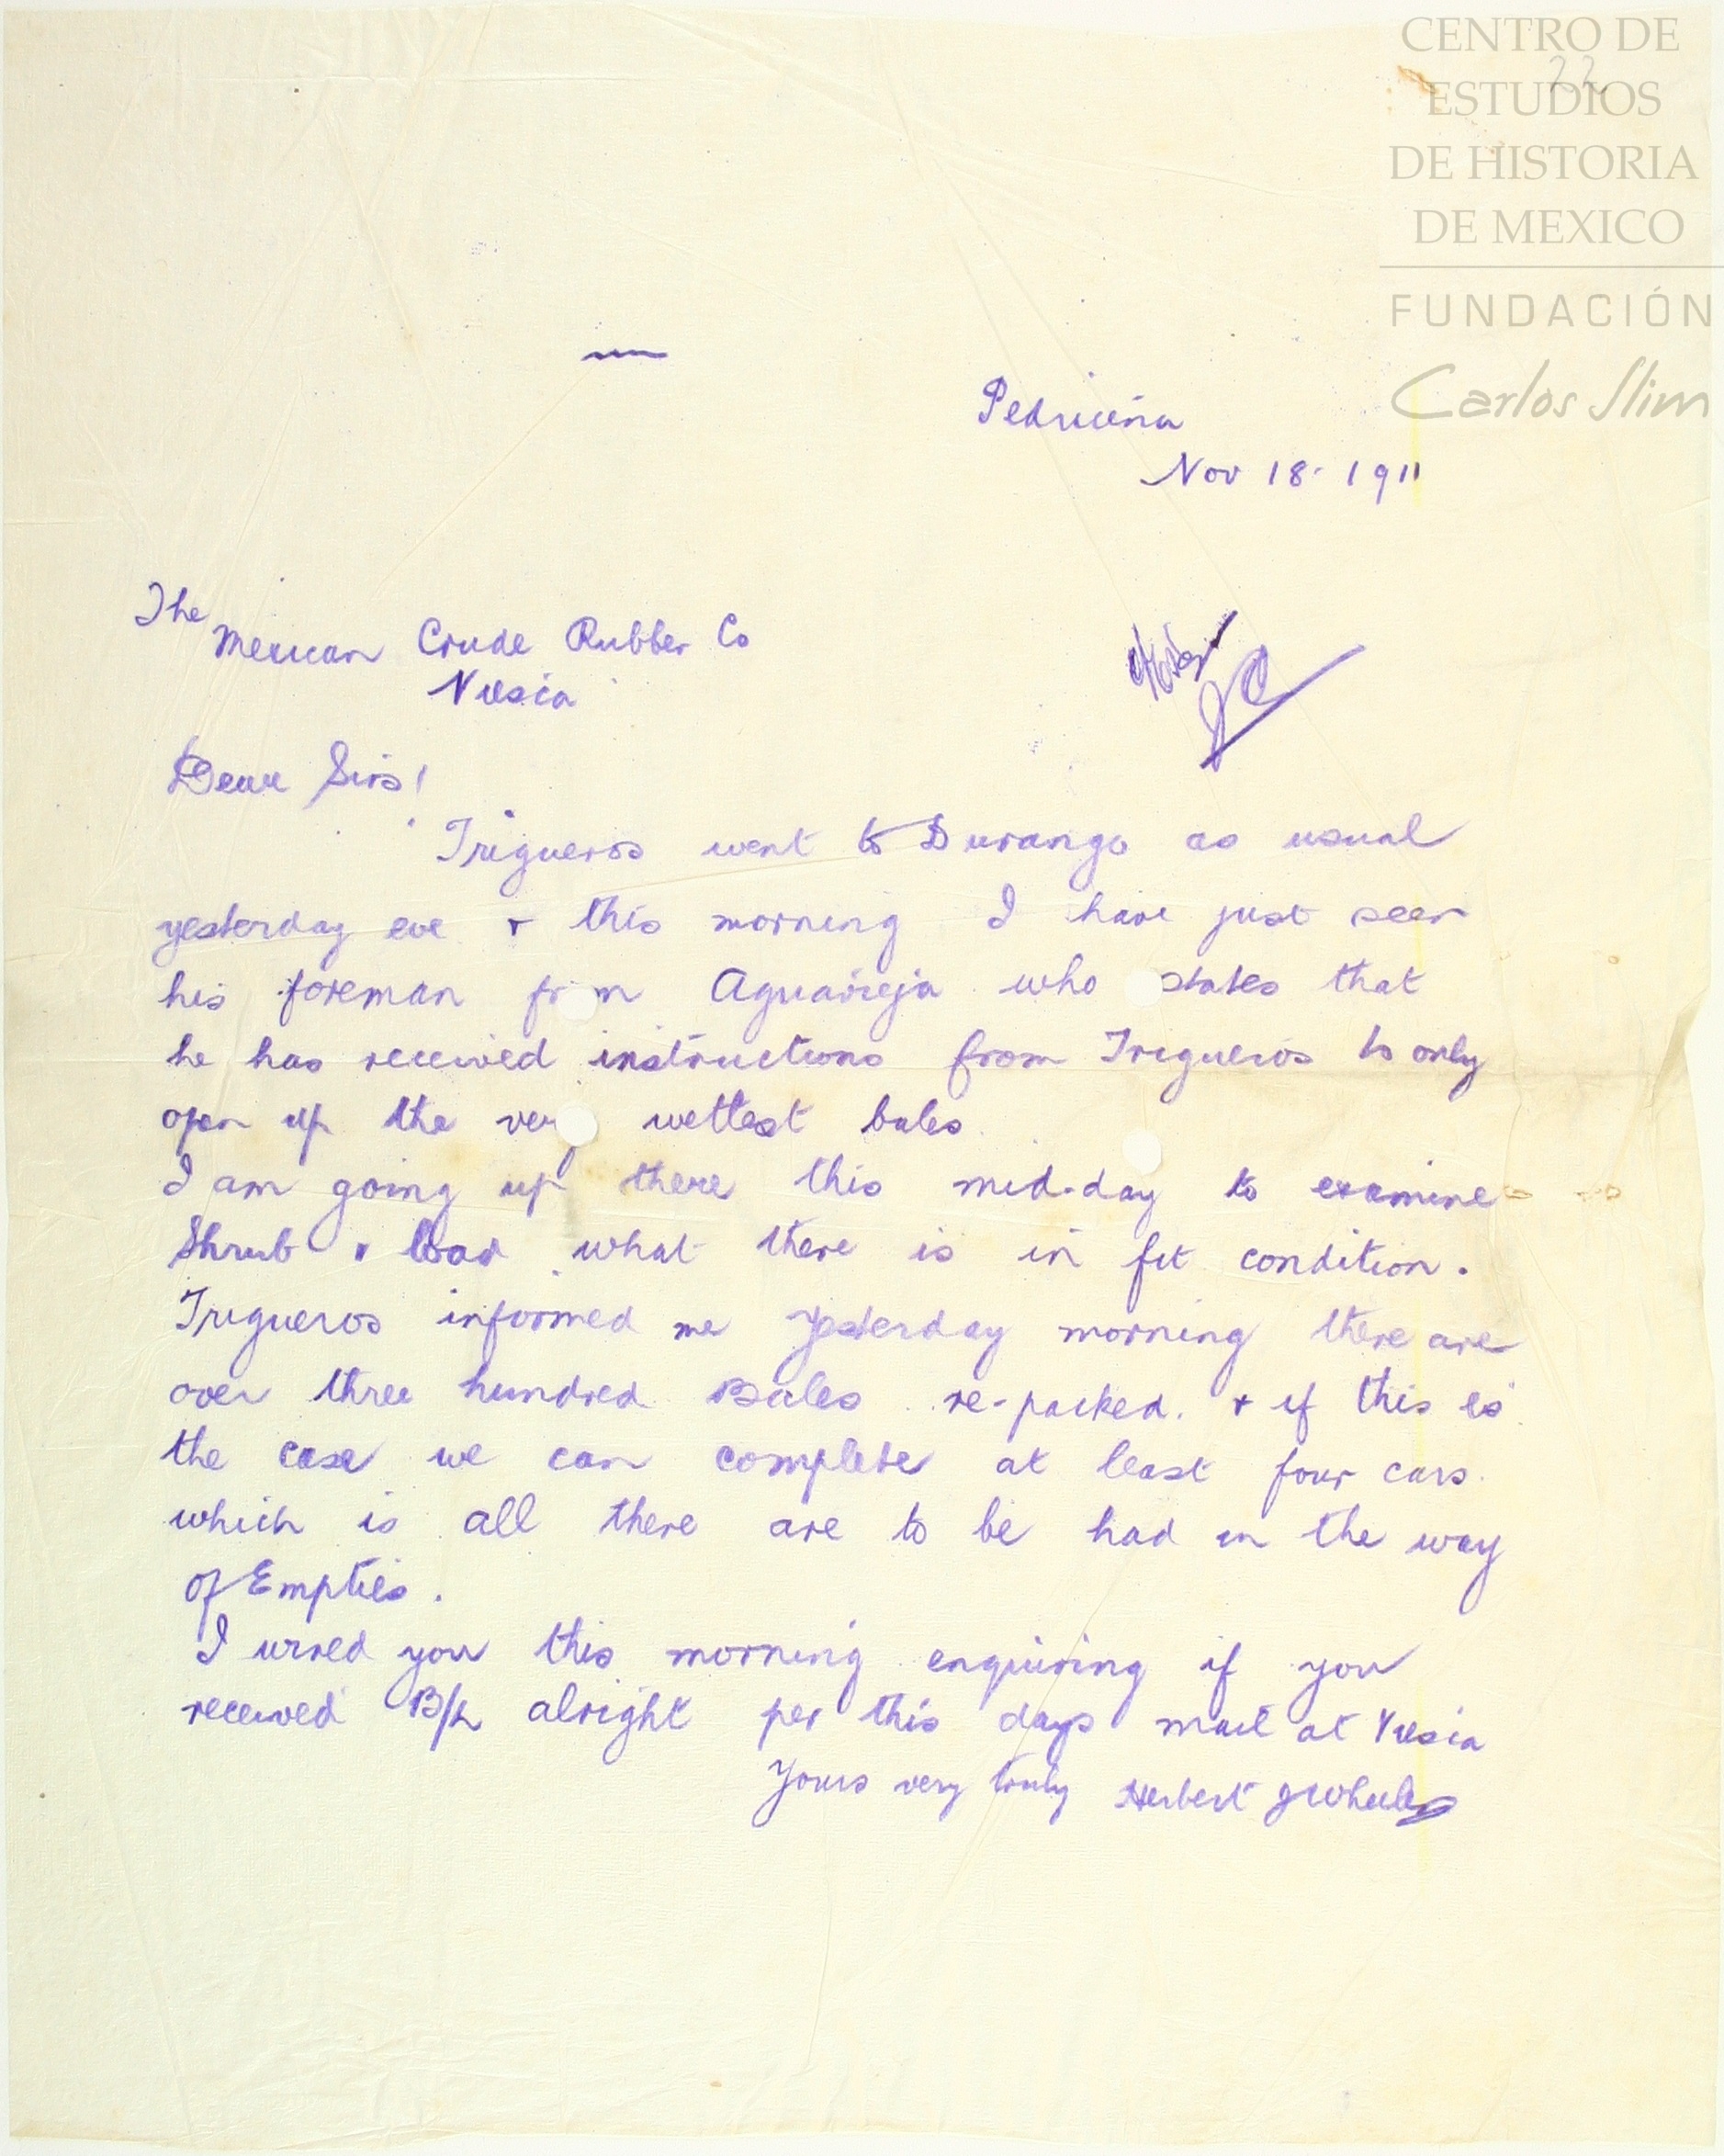 CENTRO DE
ESTUDIOS
DE HISTORIA
DE MEXICO
FUNDACIÓN
Carlos Slim
22
Pedriceña
Nov 18. 1911
The
Mexican Crude Rubber Co
Viesca
Dear Sirs!
Trigueros went to Durango as usual
yesterday eve & this morning I have just seen
his foreman from Aguavieja who states that
he has received instructions from Trigueros to only
open up the very wettest bales
I am going up there this mid-day to examine
Shrub & load what there is in fit condition.
Trigueros informed me yesterday morning there are
over three hundred Bales re-packed. & if this is
the case we can complete at least four cars.
which is all there are to be had in the way
of Empties.
I wired you this morning enquiring if you
received B/L alright per this days mail at Viesca
Yours very truly Herbert J Wheeler